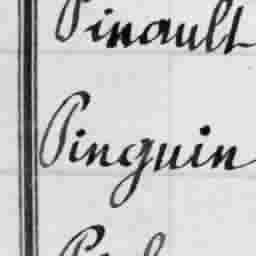 Pinault
Pinguin